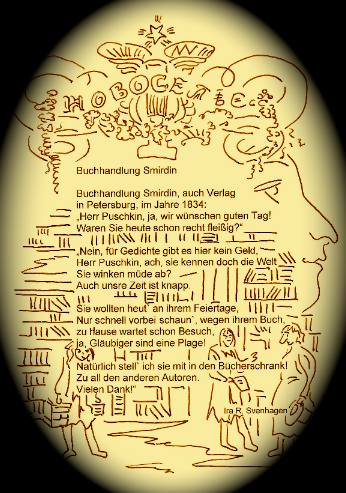 НОВОСЕЛЬЕ
Buchhandlung Smirdin
Buchhandlung Smirdin, auch Verlag
in Petersburg, im Jahre 1834:
„Herr Puschkin, ja, wir wünschen guten Tag!
Waren Sie heute schon recht fleißig?"
„Nein, für Gedichte gibt es hier kein Geld,
Herr Puschkin, ach, sie kennen doch die Welt
Sie winken müde ab?
Auch unsre Zeit ist knapp.
Sie wollten heut` an ihrem Feiertage,
Nur schnell vorbei schaun`, wegen ihrem Buch,
zu Hause wartet schon Besuch,
ja, Gläubiger sind eine Plage!
Natürlich stell` ich sie mit in den Bücherschrank!
Zu all den anderen Autoren.
Vielen Dank!"
Ira R. Svenhagen